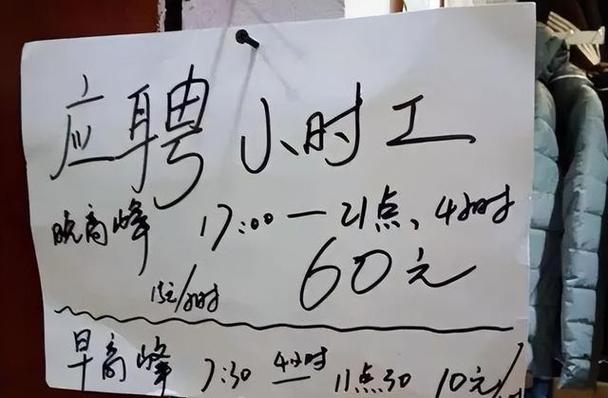 应聘小时工
晚高峰 17:00 — 21点、4小时
15元/小时 60元
早高峰 7:30 4小时 — 11点30 10元/